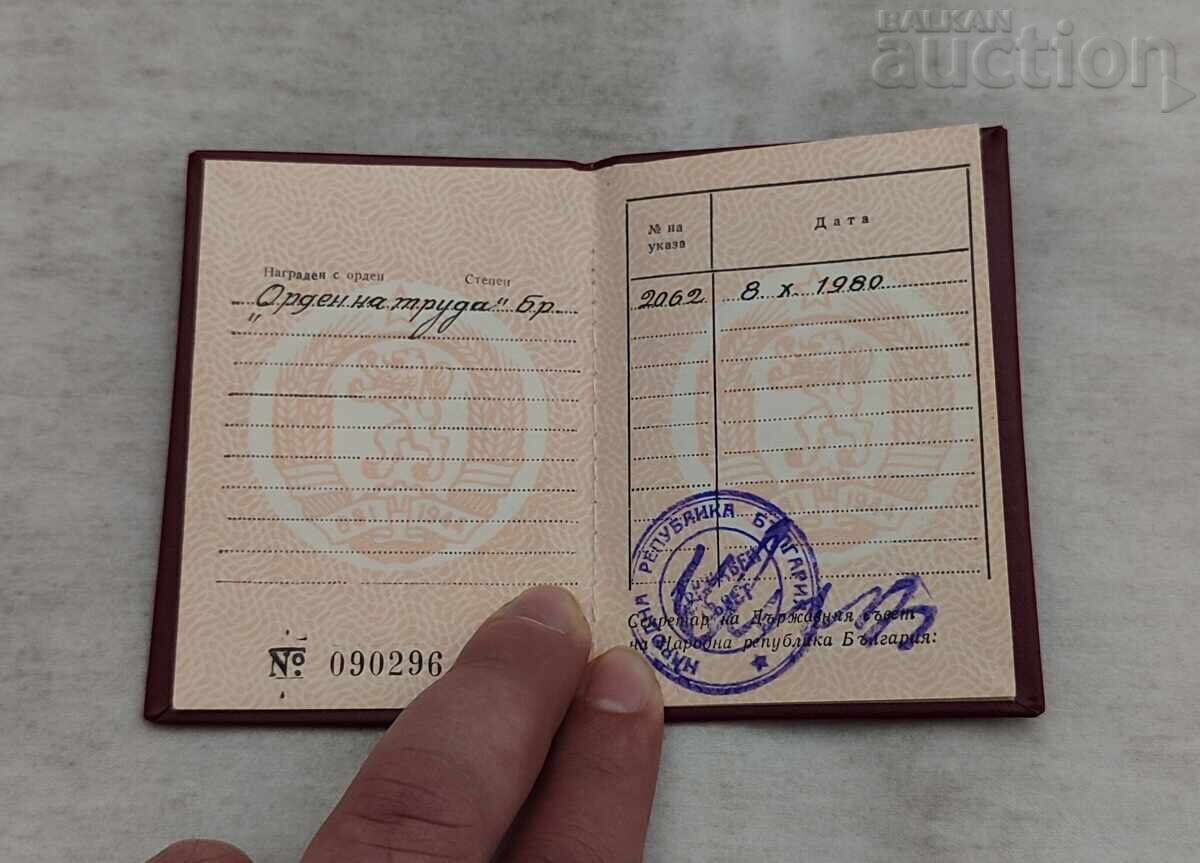 BALKAN
auction
Награден с орден Степен
"Орден на труда" бр.
№ 090296
№ на указа Дата
2062 8 X 1980
НАРОДНА РЕПУБЛИКА БЪЛГАРИЯ
ДЪРЖАВЕН
СЪВЕТ
Секретар на Държавния съвет
на Народна република България: